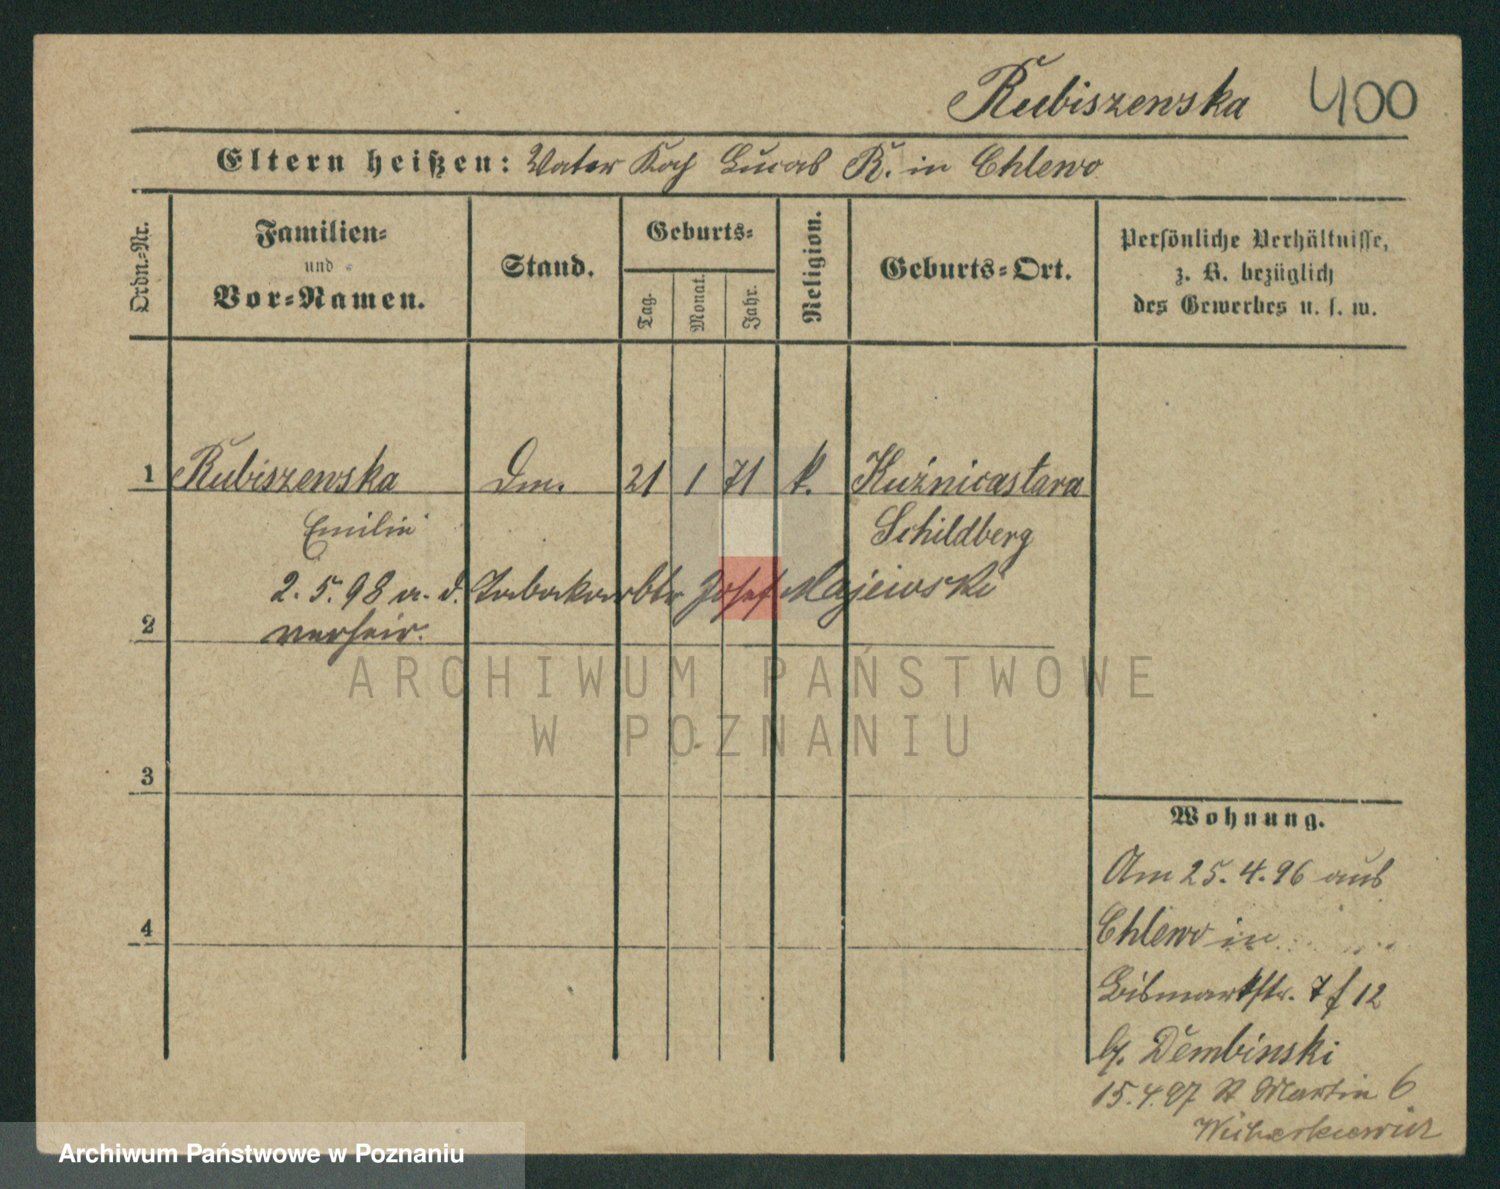 Rubiszewska 400
Eltern heißen: Vater Lucas R. in Chlewo
Ordn.-Nr.
Familien-
und
Vor-Namen.
Stand.
Geburts-
Tag.
Monat.
Jahr.
Religion.
Geburts-Ort.
Persönliche Verhältnisse,
z. B. bezüglich
des Gewerbes u. s. w.
1 Rubiszewska Dm. 21 1 71 k. Kuźnicastara
Emilie Schildberg
2. 5. 98 a. d. Tabakarbtr Josef Majewski
2 verheir.
3
4
Wohnung.
Am 25. 4. 96 aus
Chlewo in
Bismarkstr. 7 f 12
b/. Dembinski
15.4.97 St Martin 6
ARCHIWUM PAŃSTWOWE
W POZNANIU
Archiwum Państwowe w Poznaniu